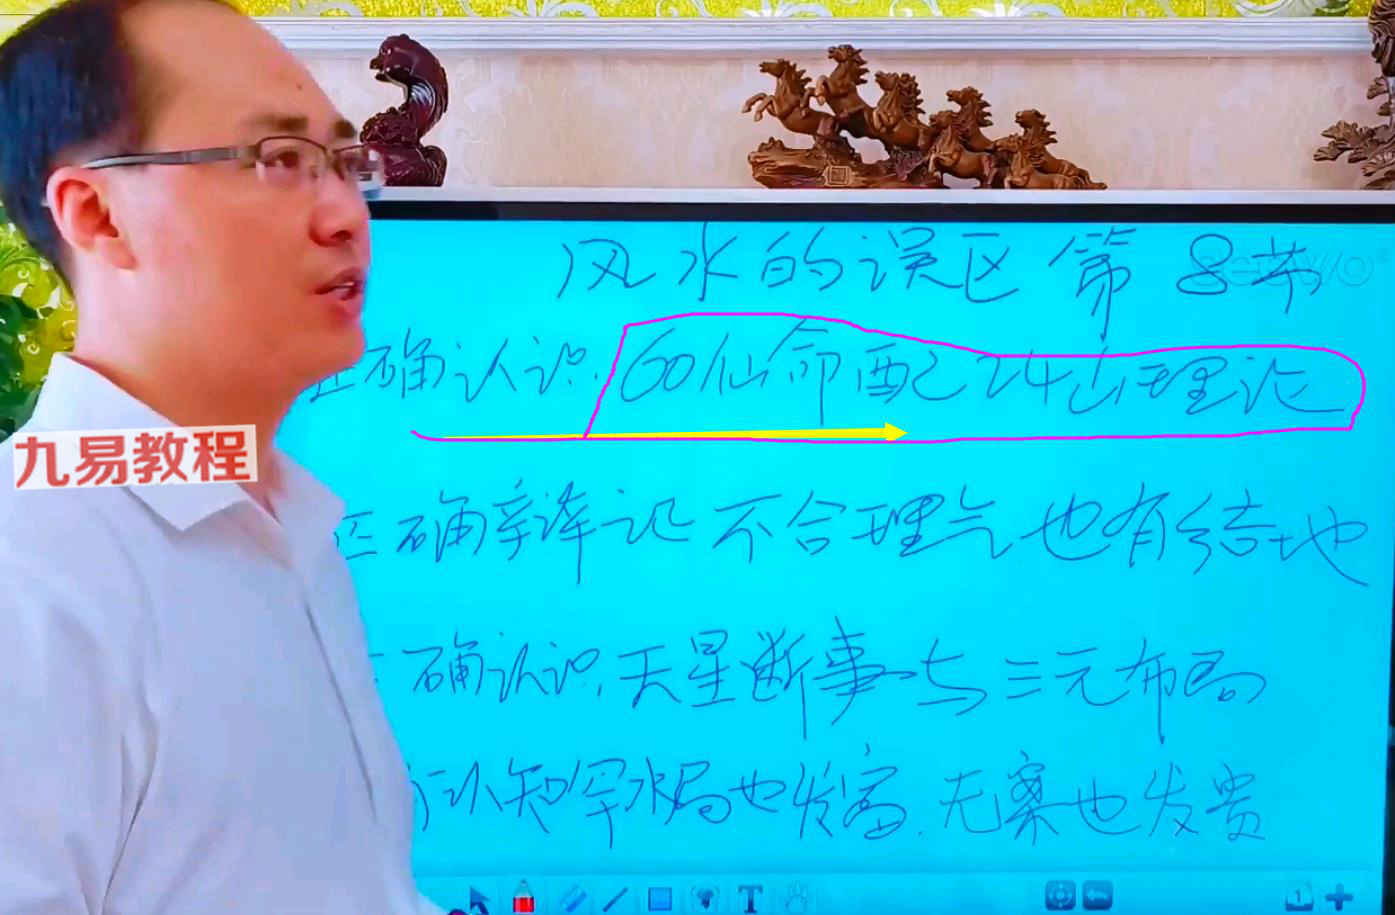 风水的误区第8节
正确认识60仙命配24山理论
九易教程
正确辩论不合理气也有结地
确认识天星断事与三元布局
认知旱水局也发富.无案也发贵
T
1